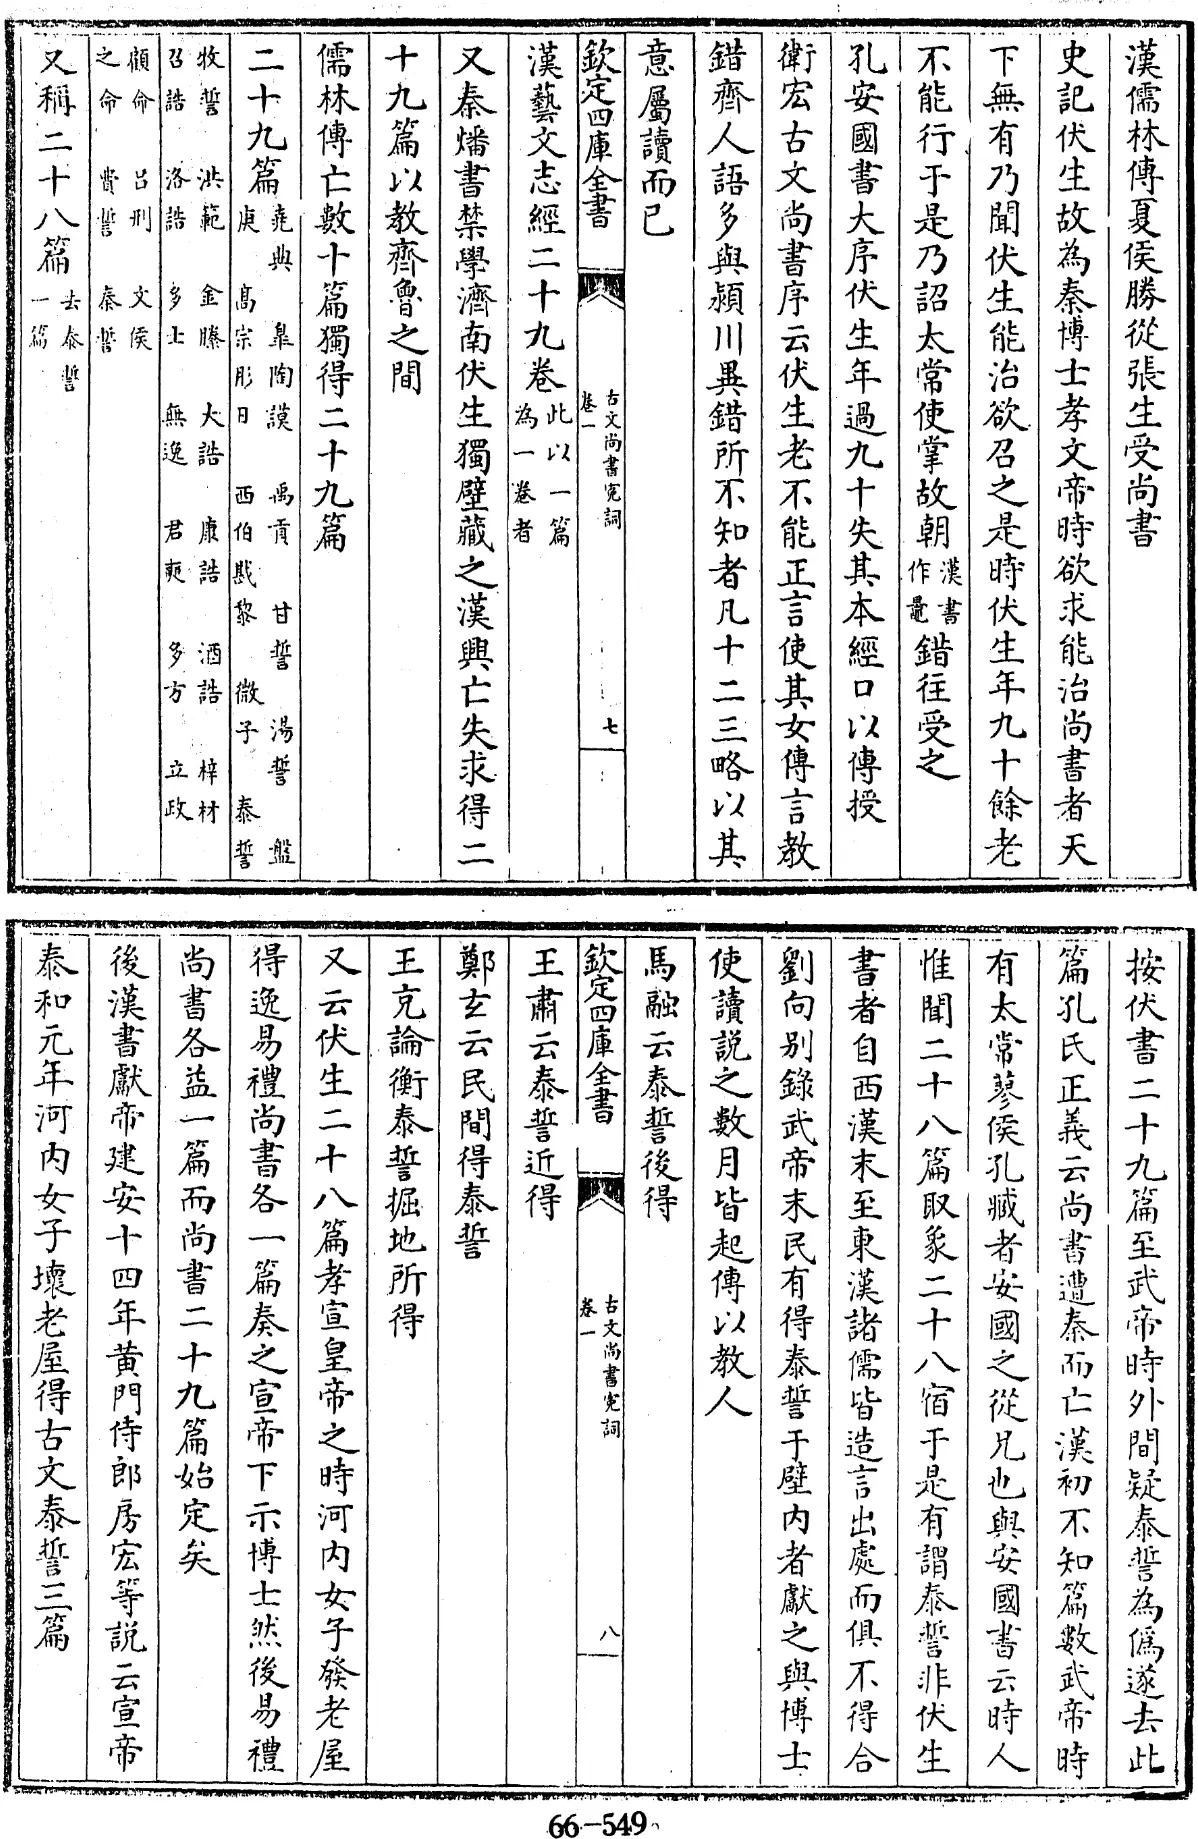 漢儒林傳夏侯勝從張生受尚書
史記伏生故為秦博士孝文帝時欲求能治尚書者天
下無有乃聞伏生能治欲召之是時伏生年九十餘老
不能行于是乃詔太常使掌故朝漢書作鼂錯往受之
孔安國書大序伏生年過九十失其本經口以傳授
衛宏古文尚書序云伏生老不能正言使其女傳言教
錯齊人語多與潁川異錯所不知者凡十二三略以其
意屬讀而已
欽定四庫全書
古文尚書寃詞
卷一
七
漢藝文志經二十九卷此以一篇為一卷者
又秦燔書禁學濟南伏生獨壁藏之漢興亡失求得二
十九篇以教齊魯之間
儒林傳亡數十篇獨得二十九篇
二十九篇堯典 臯陶謨 禹貢 甘誓 湯誓 盤
庚 高宗肜日 西伯戡黎 微子 泰誓
牧誓 洪範 金縢 大誥 康誥 酒誥 梓材
召誥 洛誥 多士 無逸 君奭 多方 立政
顧命 呂刑 文侯
之命 費誓 秦誓
又稱二十八篇去泰誓一篇
按伏書二十九篇至武帝時外間疑泰誓為偽遂去此
篇孔氏正義云尚書遭秦而亡漢初不知篇數武帝時
有太常蓼侯孔臧者安國之從兄也與安國書云時人
惟聞二十八篇取象二十八宿于是有謂泰誓非伏生
書者自西漢末至東漢諸儒皆造言出處而俱不得合
劉向别錄武帝末民有得泰誓于壁内者獻之與博士
使讀説之數月皆起傳以教人
馬融云泰誓後得
欽定四庫全書
古文尚書寃詞
卷一
八
王肅云泰誓近得
鄭玄云民間得泰誓
王充論衡泰誓掘地所得
又云伏生二十八篇孝宣皇帝之時河内女子發老屋
得逸易禮尚書各一篇奏之宣帝下示博士然後易禮
尚書各益一篇而尚書二十九篇始定矣
後漢書獻帝建安十四年黄門侍郎房宏等説云宣帝
泰和元年河内女子壞老屋得古文泰誓三篇
66-549